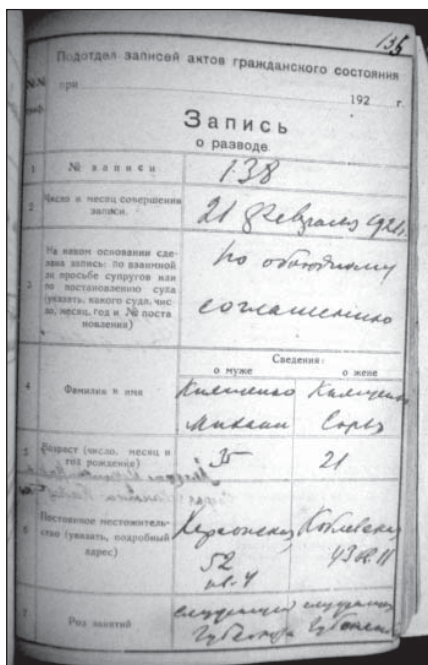 135
Подотдел записей актов гражданского состояния
№№
при
192 г.
граф.
Запись
о разводе
1 № записи 138
2 Число и месяц совершения
записи. 21 февраля 1921 г.
3 На каком основании сде-
лана запись: по взаимной
ли просьбе супругов или
по постановлению суда
(указать, какого суда, чис-
ло, месяц, год и № поста
новления)
по обоюдному
соглашению
Сведения:
о муже о жене
4 Фамилия и имя
Михаил
5 Возраст (число, месяц и
год рождение) 35 21
6 Постоянное местожитель-
ство (указать, подробный
адрес)
Херсонская
52
кв. 4
43
7 Род занятий
служащий служащая